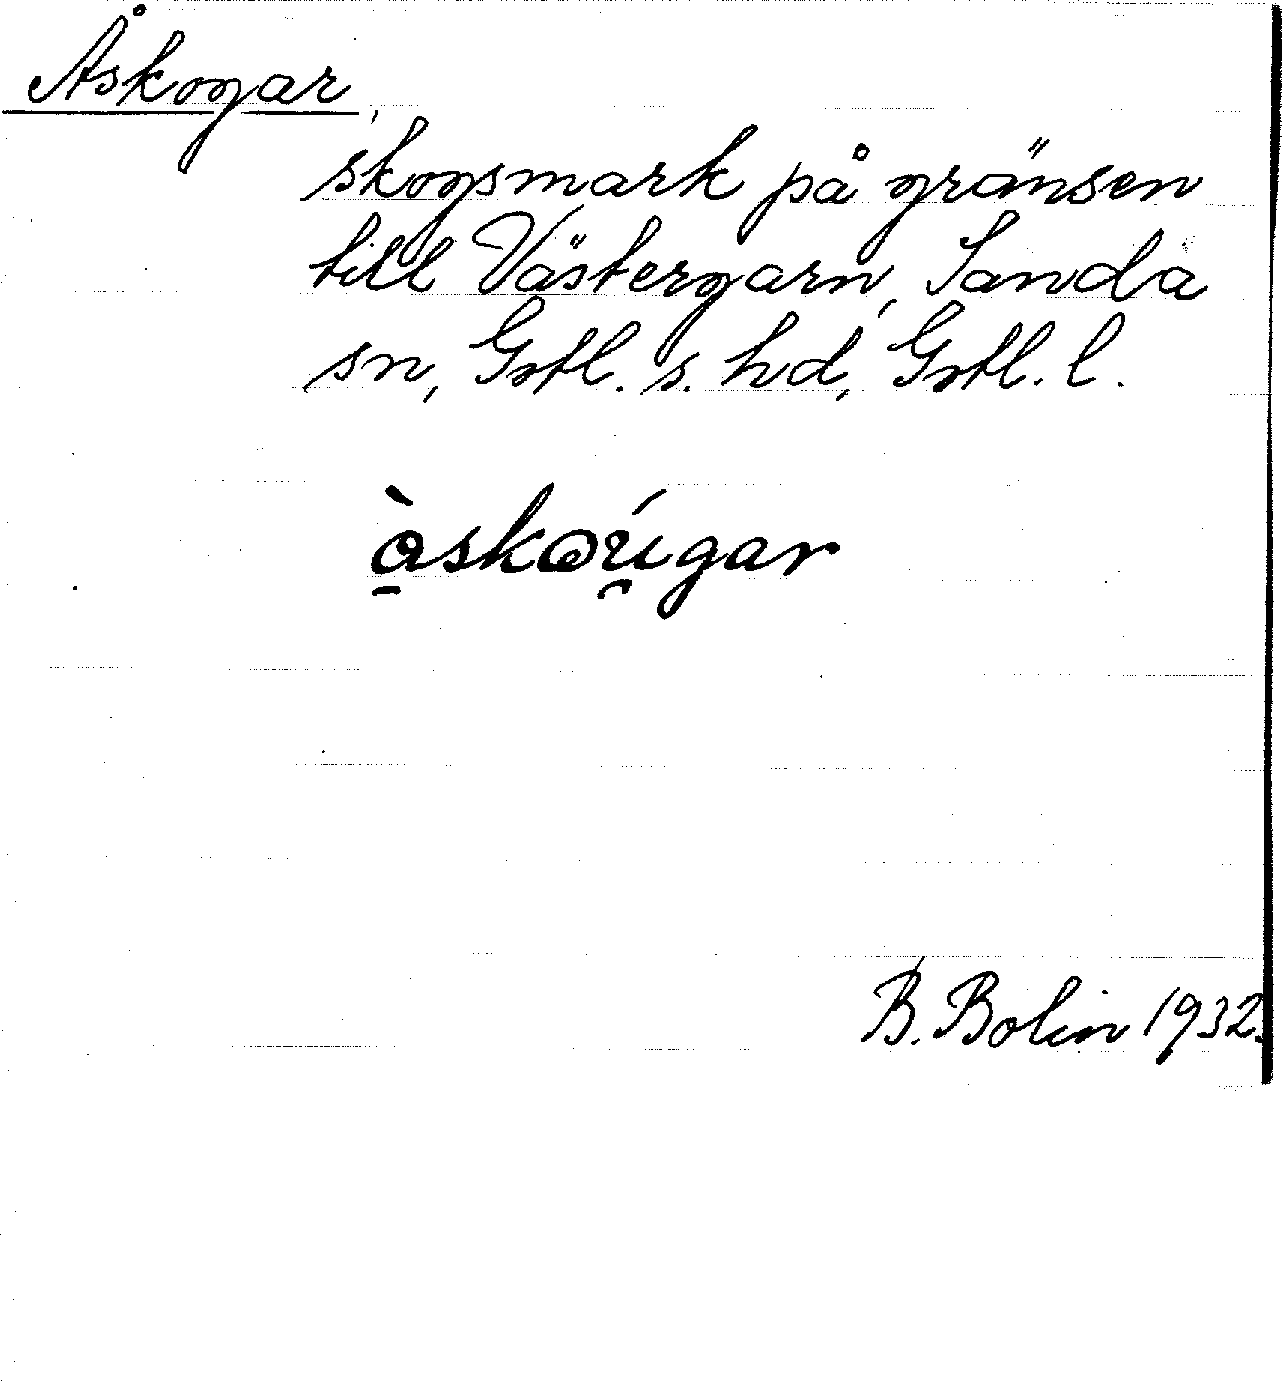 Åskogar,
skogsmark på gränsen
till Västergarn, Sanda
sn, Gotl. s. hd, Gotl. l.
òskoúgar
B. Bolin 1932.